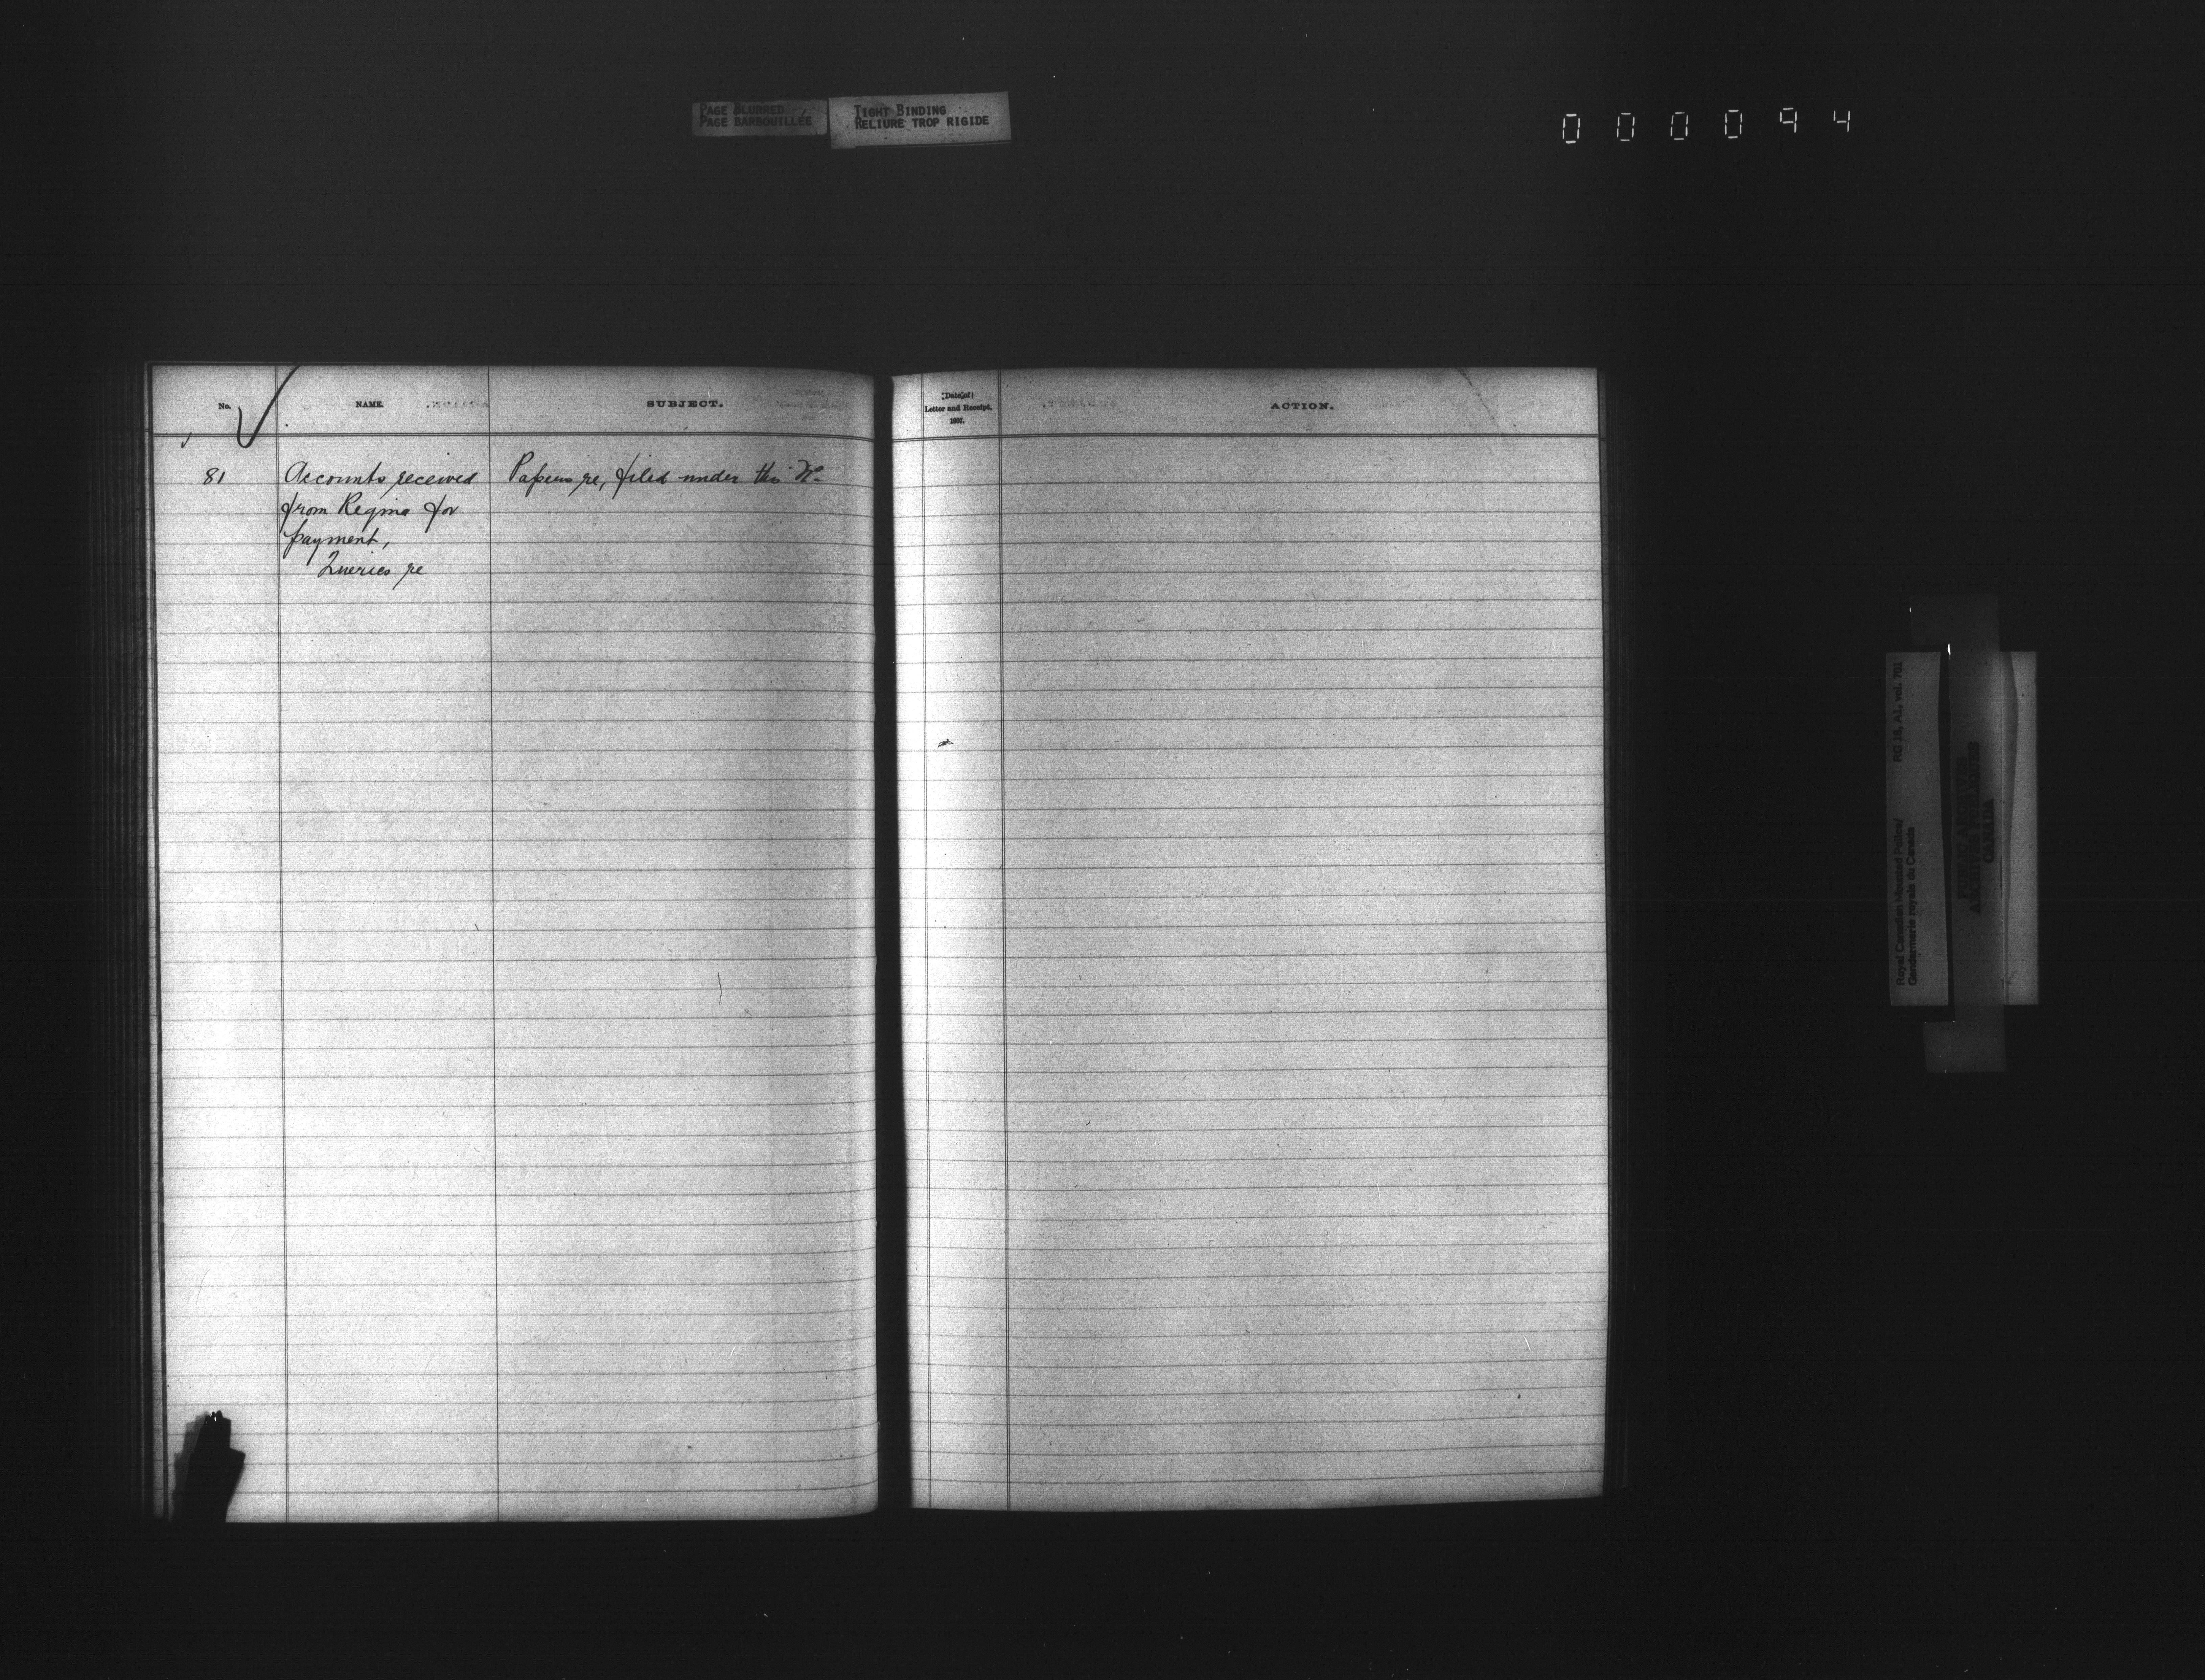 PAGE BLURRED
PAGE BARBOUILLÉE
TIGHT BINDING
RELIURE TROP RIGIDE
000094
No.
NAME.
SUBJECT.
Date of
Letter and Receipt,
1907.
ACTION.
81
Accounts received
from Regina for
payment,
Queries re
Papers re, filed under this No
Royal Canadian Mounted Police/
Gendarmerie royale du Canada
RG 18, A1, vol. 701
PUBLIC ARCHIVES
ARCHIVES PUBLIQUES
CANADA